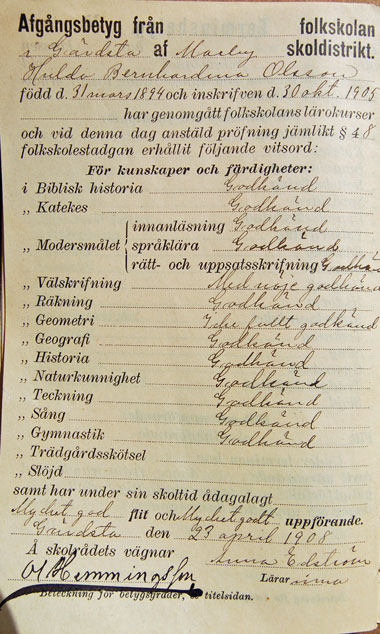 Afgångsbetyg från folkskolan
i Gärdsta af Marby skoldistrikt.
Hulda Bernhardina Olsson
född d. 31 mars 1894 och inskrifven d. 30 okt. 1905
har genomgått folkskolans lärokurser
och vid denna dag anstäld pröfning jämlikt § 48
folkskolestadgan erhållit följande vitsord:
För kunskaper och färdigheter:
i Biblisk historia Godkänd
„ Katekes Godkänd
innanläsning Godkänd
„ Modersmålet språklära Godkänd
rätt- och uppsatsskrifning Godkänd
„ Välskrifning Med nöje godkänd
„ Räkning Godkänd
„ Geometri Icke fullt godkänd
„ Geografi Godkänd
„ Historia Godkänd
„ Naturkunnighet Godkänd
„ Teckning Godkänd
„ Sång Godkänd
„ Gymnastik Godkänd
„ Trädgårdsskötsel
„ Slöjd
samt har under sin skoltid ådagalagt
Mycket god flit och Mycket godt uppförande.
Gärdsta den 23 april 1908
Å skolrådets vägnar Anna Edström
Of Hemmingsson Lärarinna
Beteckning för betygsgrader, se titelsidan.